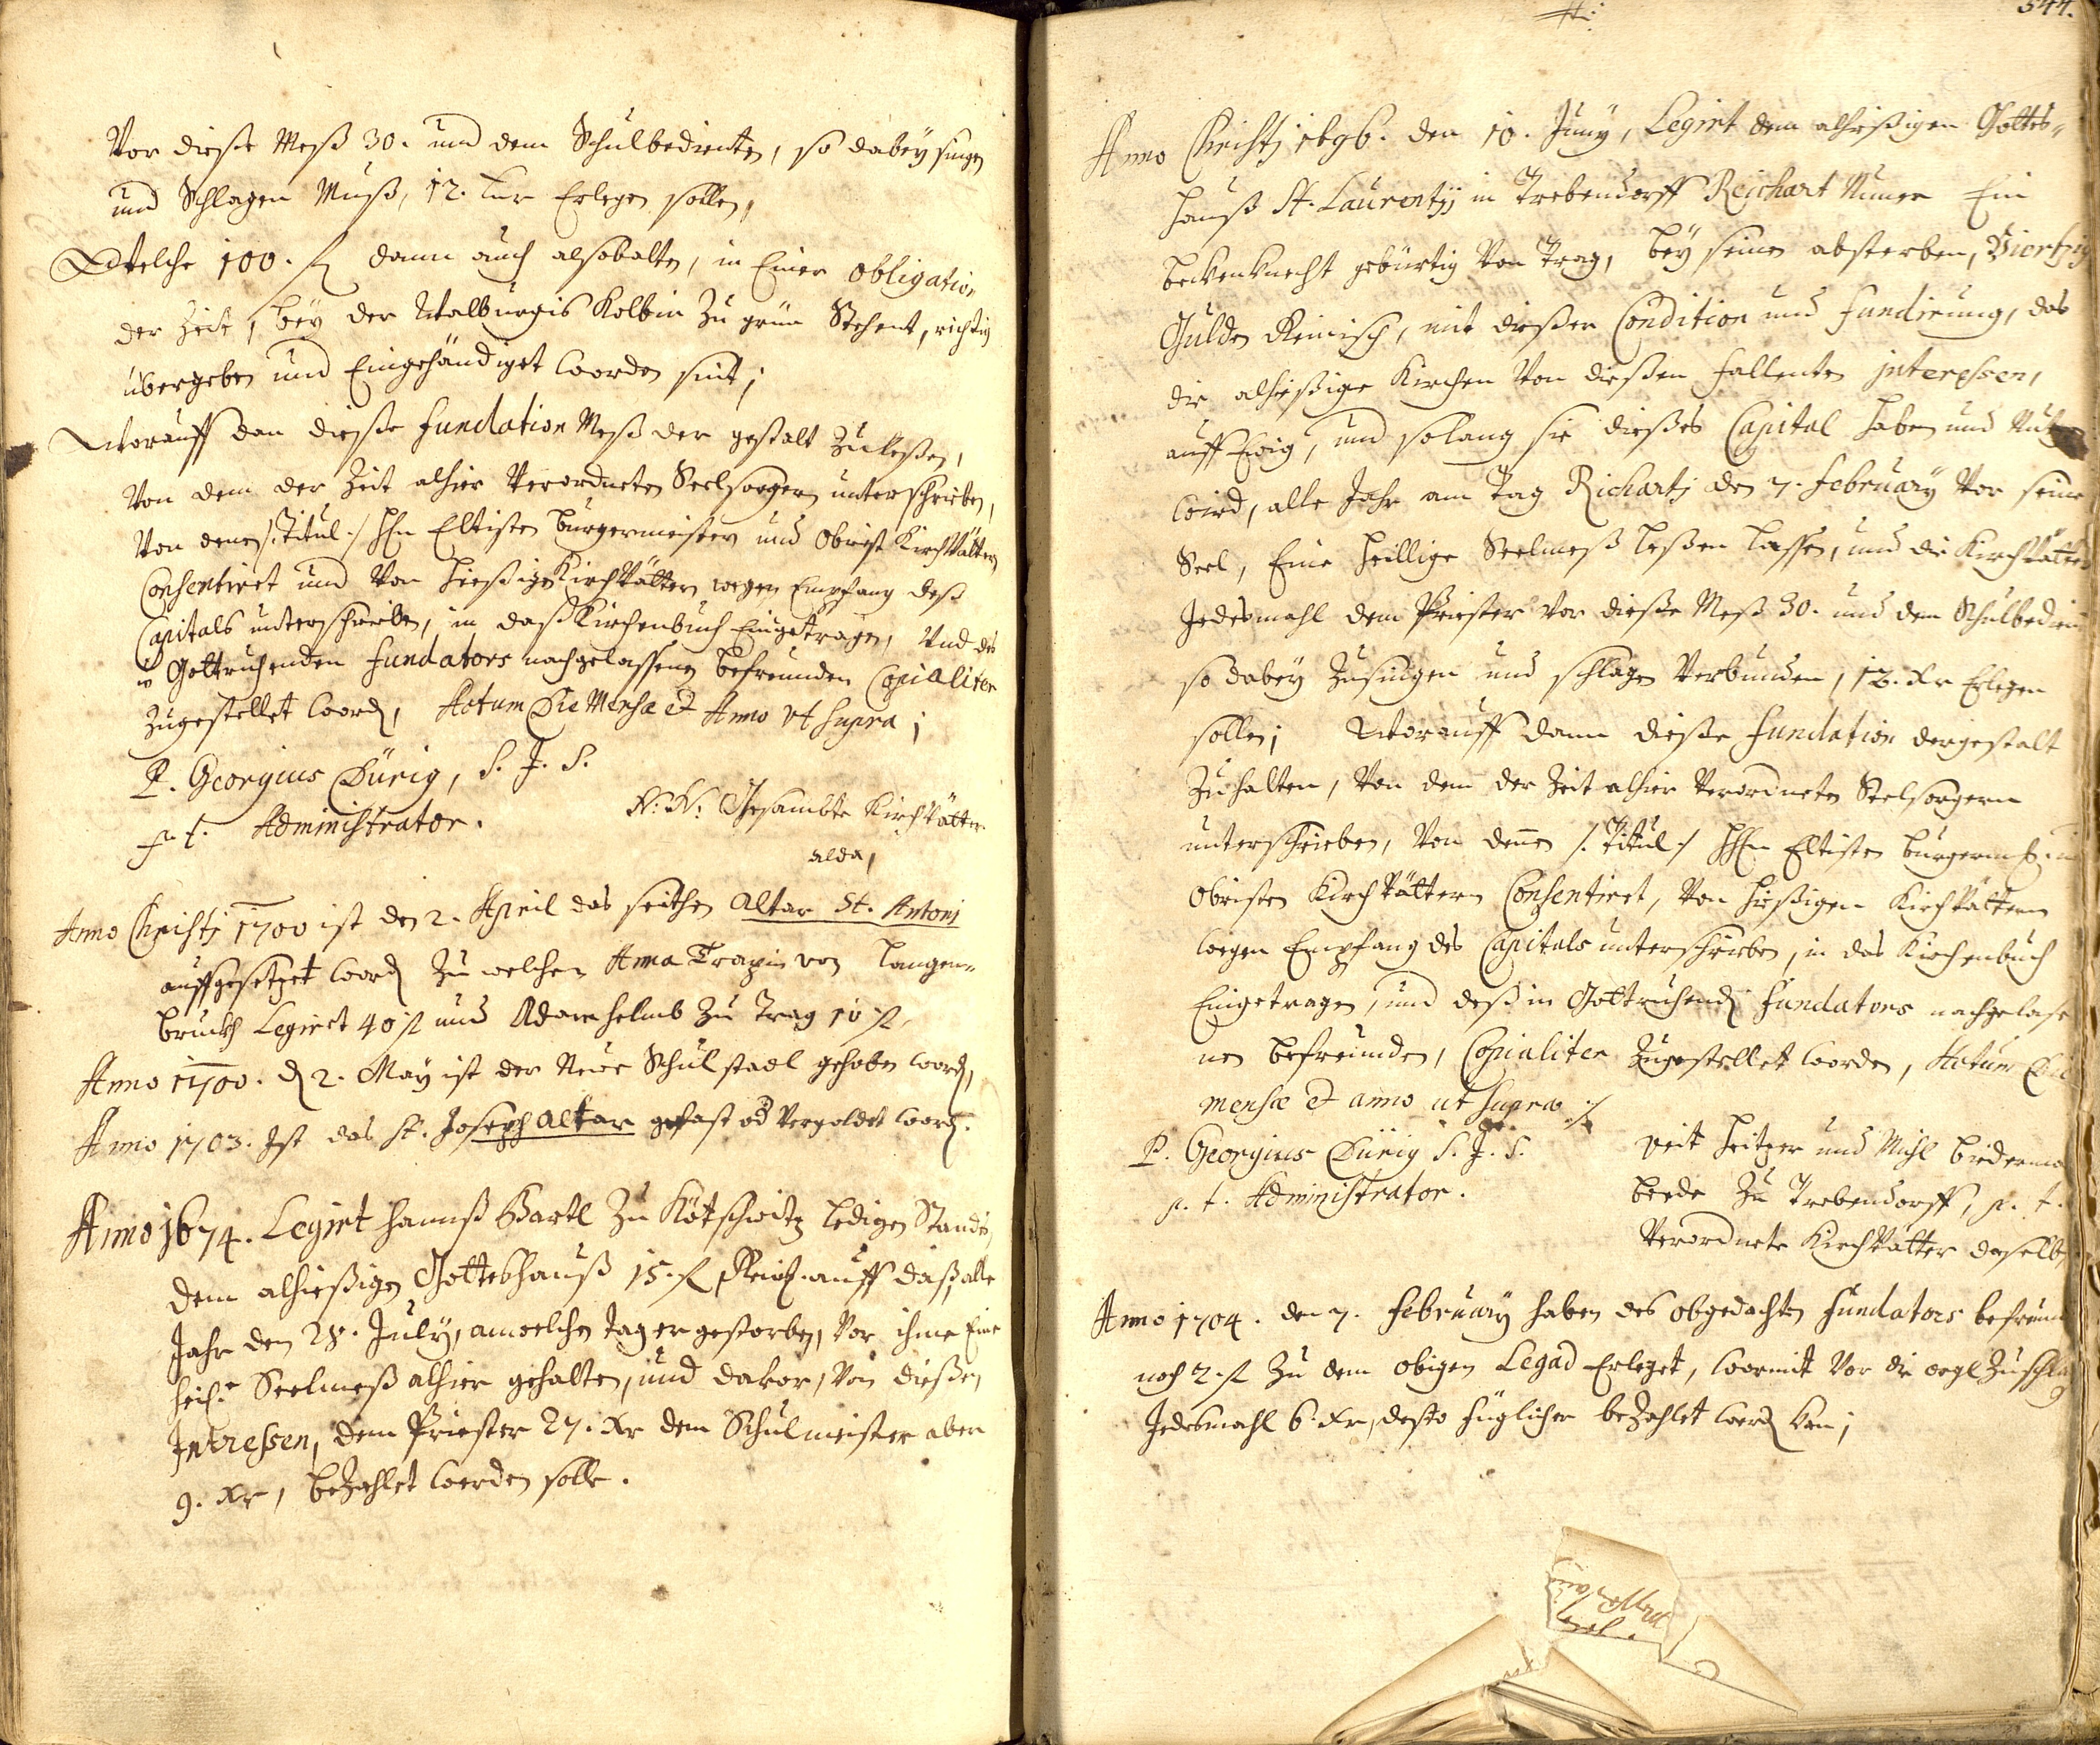 Vor dieße Meß 30. und dem Schulbedienten, so dabey singen
und Schlagen Muß, 12. kr Erlegen sollen,
Welche 100. fl dann auch alsobalten, in Einer obligation
der Zeit, bey der Walburgis Kolbin Zu grün Stehent, richtig
übergeben und Eingehändiget worden sint;
Worauff dan dieße fundation Meß der gestalt Zuleßen,
Von dem der Zeit alhier Verordneten Seelsorgern unterschrieben,
Von denen /: Titul :/ HHn Eltisten burgermeister und Obrist KirchVättern
Consentiret und Von hießigen KirchVättern wegen Empfang deß
Capitals unterschrieben, in daß Kirchenbuch Eingetragen, Und des
in Gottruhenden fundators nachgelassenen befreunden Copialiter
Zugestellet word, Actum Die Mense et Anno vt supra;
P. Georgius Dürig, S. J. S.
p. t. Administrator.
N: N: Gesambte KirchVätter
alda,
Anno Christj 1700 ist den 2. April das seithen Altar St. Antoni
auffgesetzet word Zu welchen Anna Trapin von langen-
bruckh Legiret 40 fl und Adam helmb Zu Trag 10 fl,
Anno 1700. d 2. May ist der Neue Schulstadl gehoben word,
Anno 1703. Ist das St. Joseph Altar gefast vd Vergoldet word.
Anno 1674. Legirt hannß Bartl Zu Kötschwitz ledigen Stands,
dem alhießigen Gotteshauß 15. fl Reinß. auff daß alle
Jahr den 28. July, amwelchen tag er gestorben, Vor ihme Eine
heil. Seelmeß alhier gehalten, und davor, Von dießen
Intressen, dem Priester 27. Xr dem Schulmeister aber
9. Xr, beZahlet werden solle.
544.
Anno Christj 1696. den 10. Juny, Legirt dem alhießigen Gottes-
hauß St. Laurentij in Trebendorff Reichart Ein
beckenknecht gebürtig Von Trag, bey seinen absterben, Viertzig
Gulden Reinisch, mit dießer Condition und fundirung, das
die alhießige Kirchen Von dießen fallenten interessen,
auff Ewig, und solang sie dießes Capital haben und
wird, alle Jahr am Tag Richartj den 7. February Vor seine
Seel, Eine heillige Seelmeß leßen lassen, und die KirchVätter
Jedesmahl dem Priester Vor dieße Meß 30. und dem Schulbedien
so dabey Zusingen und schlagen Verbunden, 12. Xr Erlegen
sollen; Worauff dann dieße fundation dergestalt
Zuhalten, Von dem der Zeit alhier Verordneten Seelsorgern
unterschrieben, Von denen /: Titul :/ HHn Eltisten burgermst.
Obristen KirchVättern Consentiret, Von hießigen KirchVättern
wegen Empfang des Capitals unterschrieben, in das Kirchenbuch
Eingetragen, und deß in Gottruhend fundators nachgelase
nen befreunden, Copialiter Zugestellet worden, Actum Die
mense et anno ut supra :/
P. Georgius Dürig S. J. S.
p. t. Administrator.
Veit heitzer und Michl biederma
beede Zu Trebendorff, p. t.
Verordnete KirchVätter daselb
Anno 1704. den 7. February haben des obgedachten fundators befreund
noch 2. fl Zu dem obigen Legad Erleget, wormit Vor die orgl Zuschlag
Jedesmahl 6. Xr, desto füglicher beZahlet werd kan;